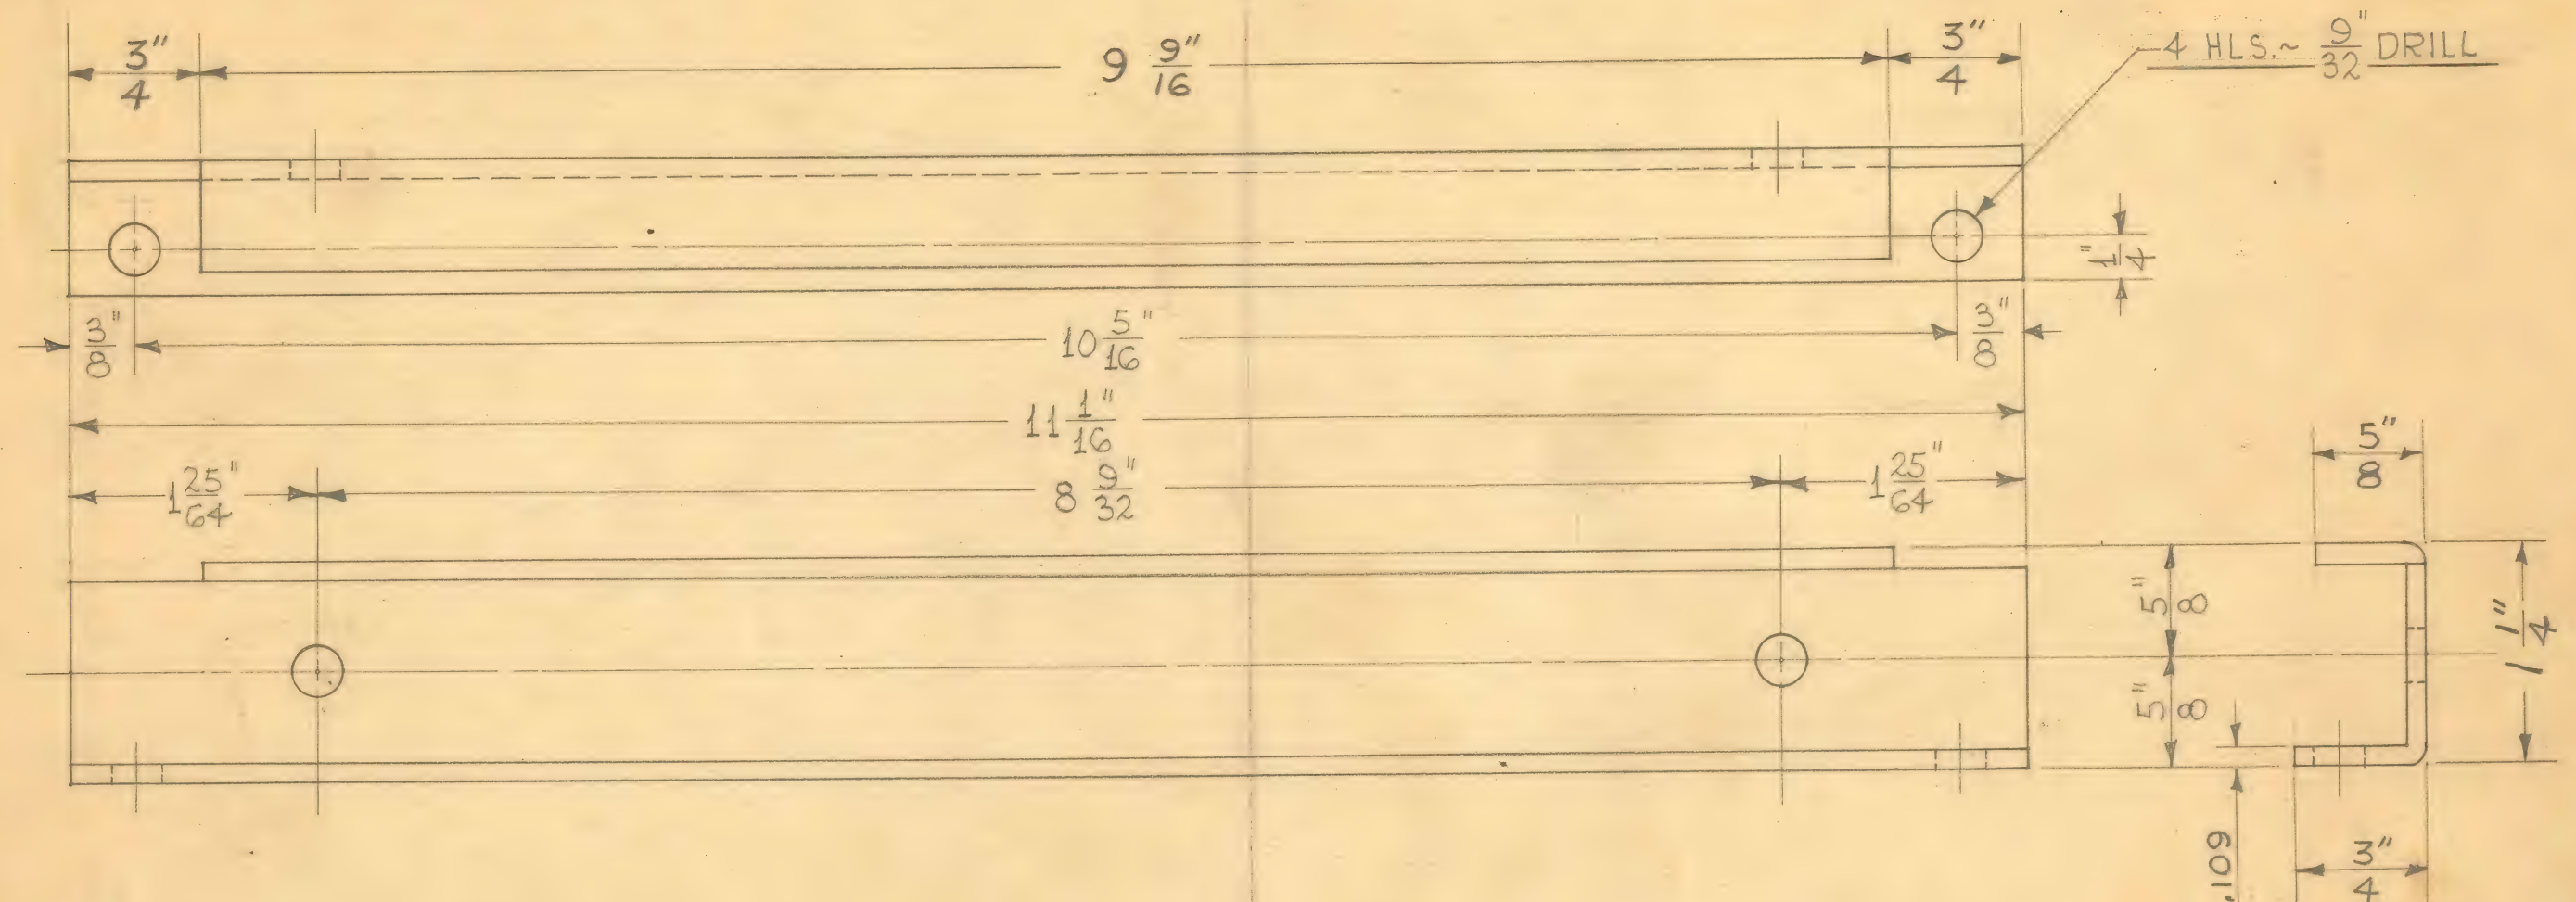 3/4"
9 9/16"
3/4"
4 HLS.~ 9/32" DRILL
1/4"
3/8"
10 5/16"
3/8"
11 1/16"
1 25/64"
8 9/32"
1 25/64"
5/8"
5/8"
1 1/4"
5/8"
.109
3/4"